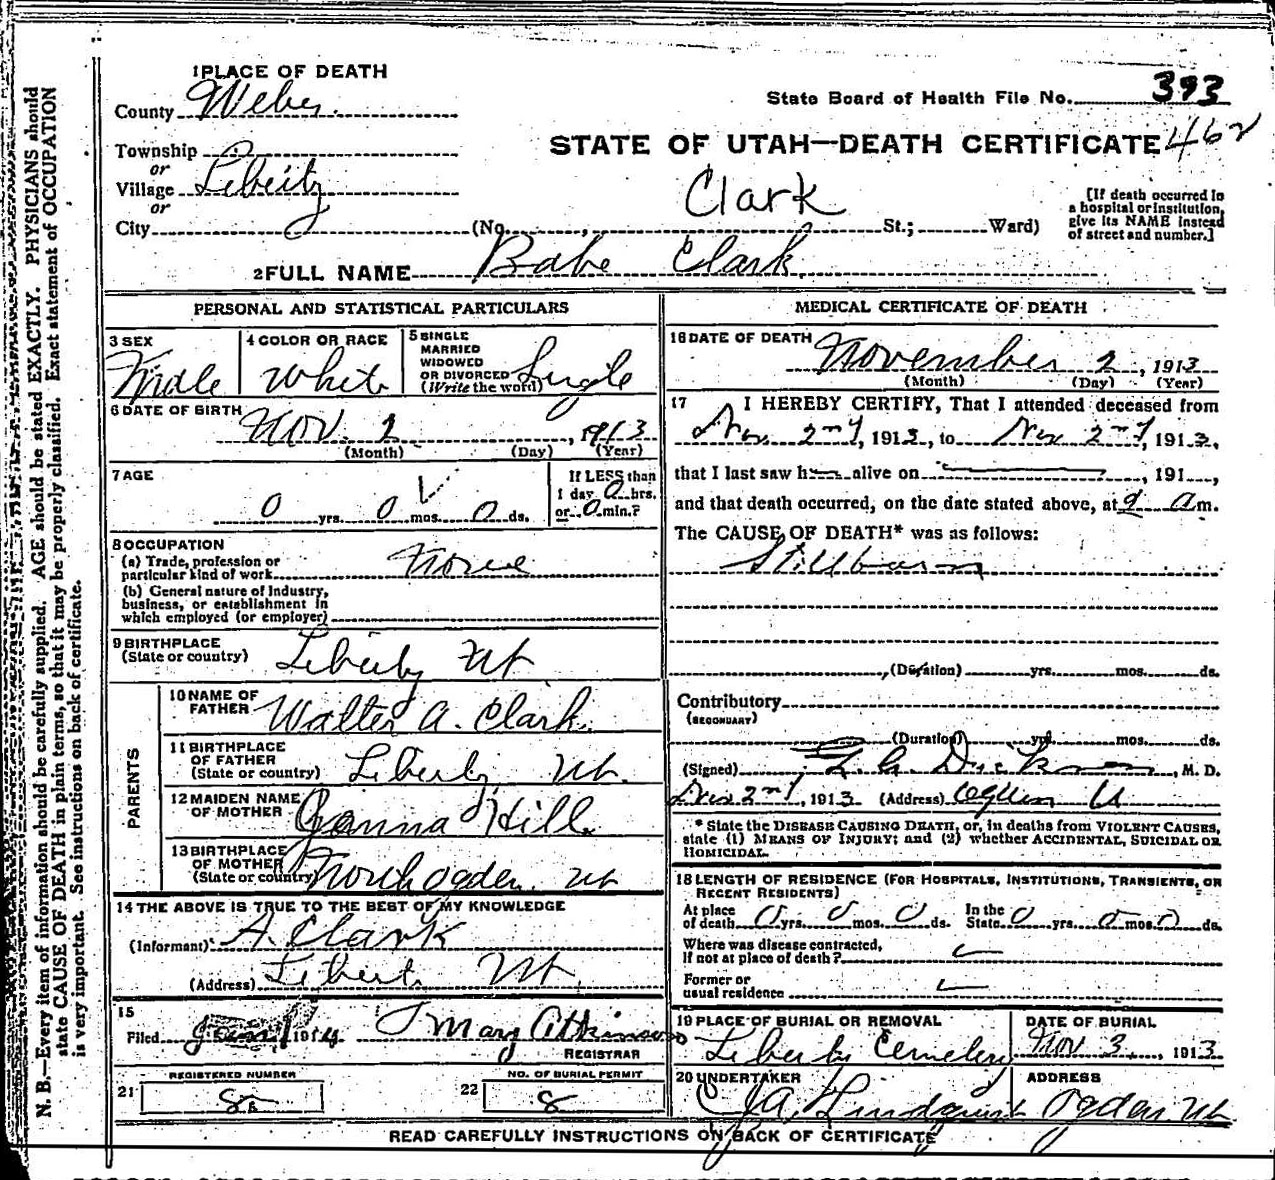 1 PLACE OF DEATH
County Weber
State Board of Health File No. 393
STATE OF UTAH—DEATH CERTIFICATE 462
Township
or
Village Liberty
or
City
(No. , St.; Ward)
Clark
[If death occurred in a hospital or institution, give its NAME instead of street and number.]
2 FULL NAME Babe Clark
PERSONAL AND STATISTICAL PARTICULARS
3 SEX Male
4 COLOR OR RACE White
5 SINGLE MARRIED WIDOWED OR DIVORCED (Write the word) Single
6 DATE OF BIRTH Nov. 2, 1913
(Month) (Day) (Year)
7 AGE 0 yrs. 0 mos. 0 ds.
If LESS than 1 day 0 hrs. or 0 min.?
8 OCCUPATION
(a) Trade, profession or particular kind of work None
(b) General nature of Industry, business, or establishment in which employed (or employer)
9 BIRTHPLACE (State or country) Liberty Ut
PARENTS
10 NAME OF FATHER Walter A. Clark.
11 BIRTHPLACE OF FATHER (State or country) Liberty Ut.
12 MAIDEN NAME OF MOTHER Hill.
13 BIRTHPLACE OF MOTHER (State or country) North Ogden, Ut
14 THE ABOVE IS TRUE TO THE BEST OF MY KNOWLEDGE
(Informant) A. Clark
(Address) Libert. Ut.
15
Filed Jan 1 1914 Mary Atkinson
REGISTRAR
REGISTERED NUMBER
21
NO. OF BURIAL PERMIT
22 8
MEDICAL CERTIFICATE OF DEATH
16 DATE OF DEATH November 2, 1913
(Month) (Day) (Year)
17 I HEREBY CERTIFY, That I attended deceased from
Nov. 2nd, 1913, to Nov 2nd, 1913,
that I last saw h alive on , 191 ,
and that death occurred, on the date stated above, at 9 a m.
The CAUSE OF DEATH* was as follows:
Stillborn
(Duration) yrs. mos. ds.
Contributory
(SECONDARY)
(Duration) yrs. mos. ds.
(Signed) , M. D.
Nov 2nd, 1913 (Address) Ogden U
* State the DISEASE CAUSING DEATH, or, in deaths from VIOLENT CAUSES,
state (1) MEANS OF INJURY; and (2) whether ACCIDENTAL, SUICIDAL OR
HOMICIDAL.
18 LENGTH OF RESIDENCE (FOR HOSPITALS, INSTITUTIONS, TRANSIENTS, OR RECENT RESIDENTS)
At place of death 0 yrs. 0 mos. 0 ds. In the State 0 yrs. 0 mos. 0 ds.
Where was disease contracted, If not at place of death?
Former or usual residence
19 PLACE OF BURIAL OR REMOVAL Liberty Cemetery
DATE OF BURIAL Nov 3, 1913
20 UNDERTAKER J A. Lindquist
ADDRESS Ogden Ut
READ CAREFULLY INSTRUCTIONS ON BACK OF CERTIFICATE
N. B.—Every item of information should be carefully supplied. AGE should be stated EXACTLY. PHYSICIANS should
state CAUSE OF DEATH in plain terms, so that it may be properly classified. Exact statement of OCCUPATION
is very important. See instructions on back of certificate.